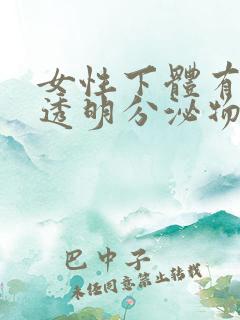 女性下體有
透明分泌物
巴中子
未經同意禁止轉載